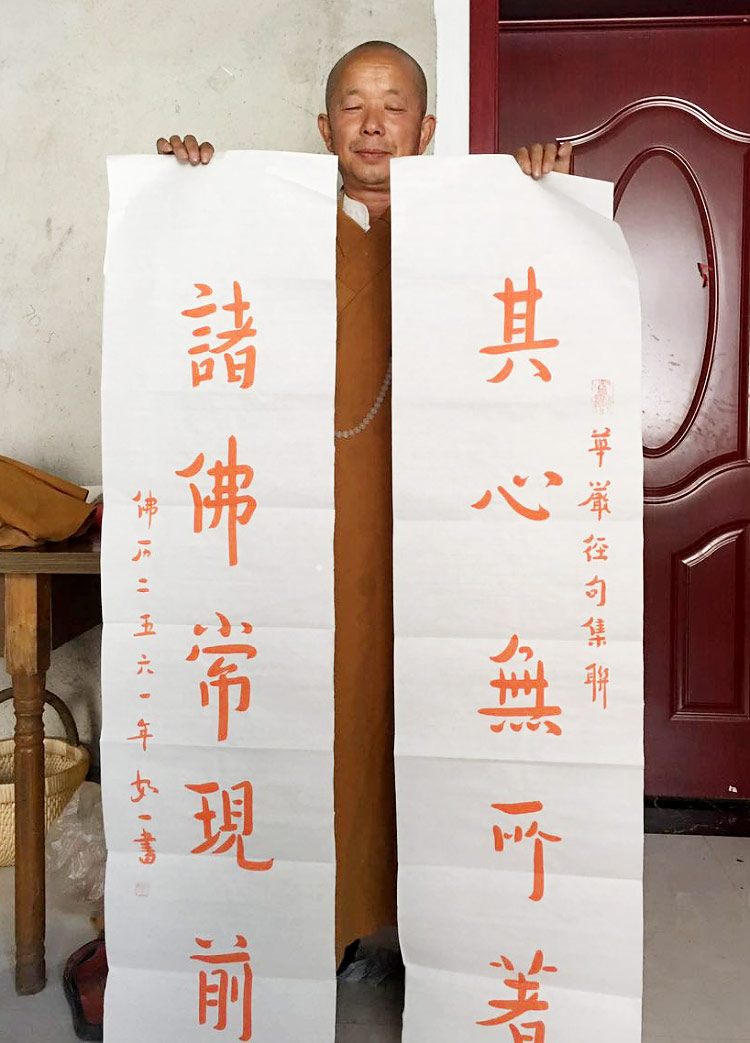 華嚴径句集聯
其心無所著
諸佛常現前
佛历二五六一年如一書